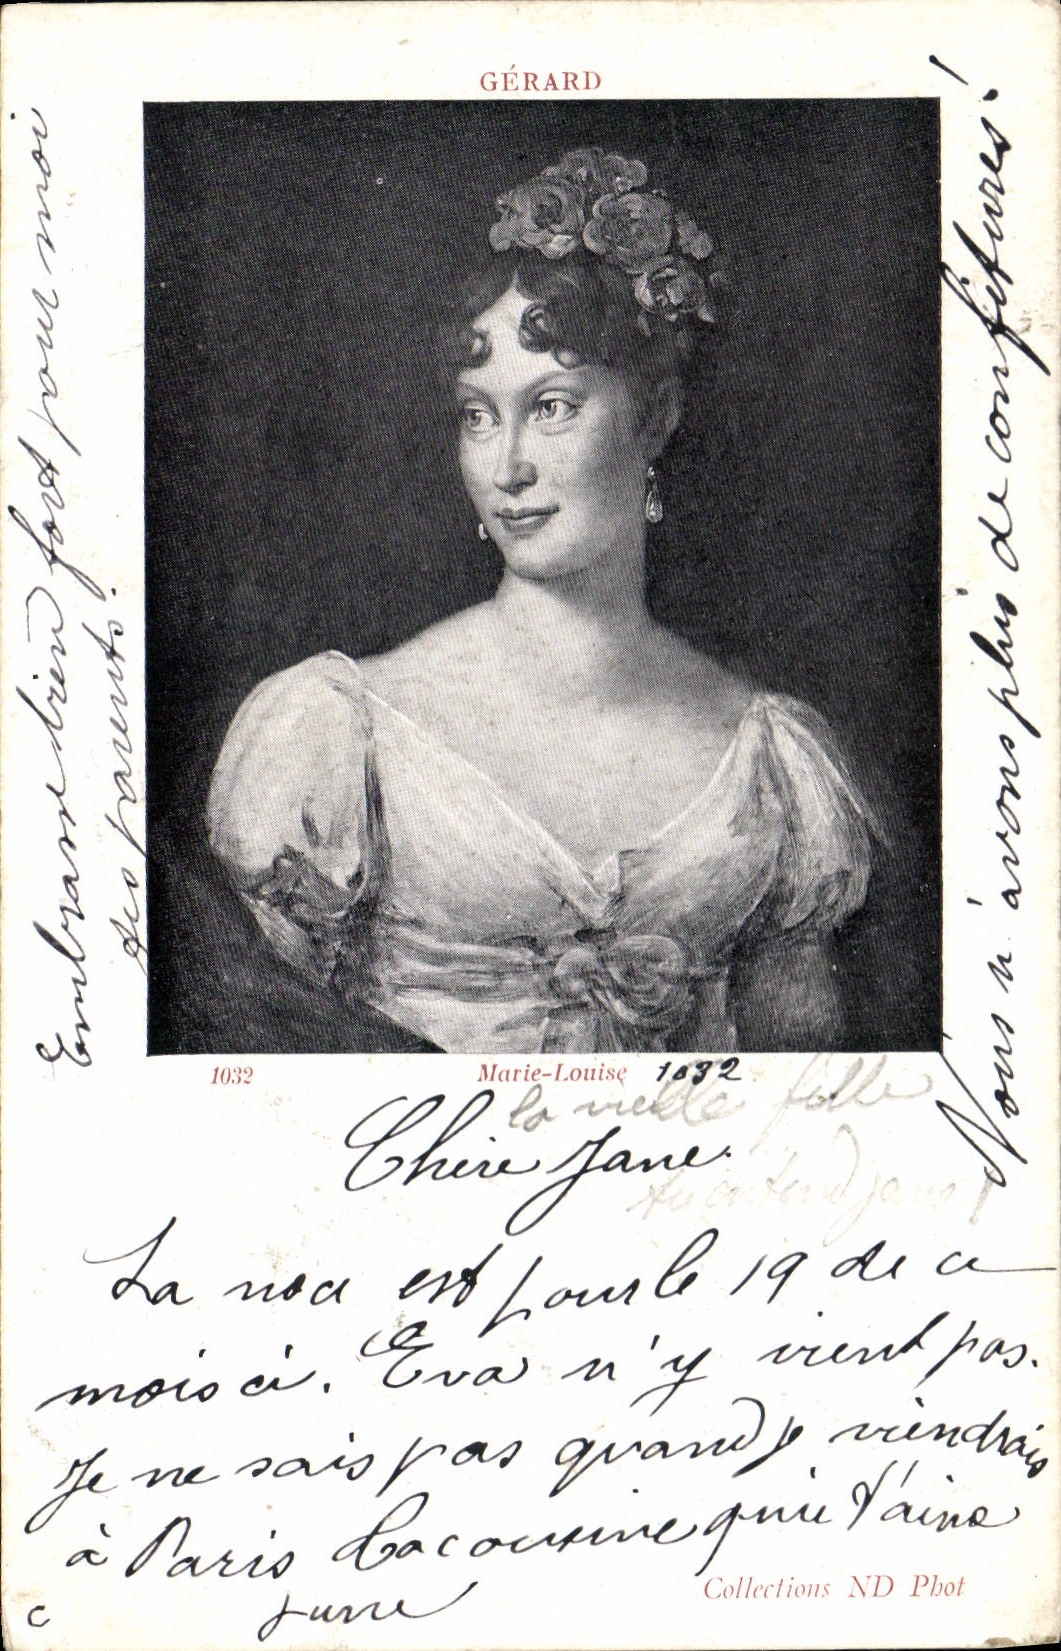 GÉRARD
1032
Marie-Louise 1032
la vieille fille
Chère Jane.
La noce est pour le 19 de ce
mois ci. Eva n'y vient pas.
Je ne sais pas quand je viendrais
à Paris La cousine qui t'aime
Collections ND Phot
c
Embrasse bien fort pour moi
tes parents.
Nous n'avons plus de confitures!